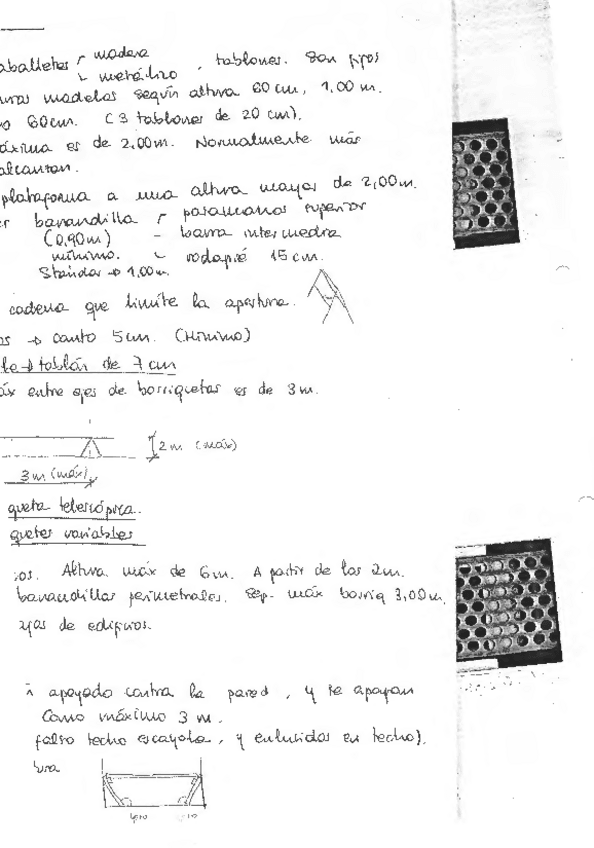 madera
metálico , tablones. Son fijos
modelos según altura 60 cm, 1,00 m.
60 cm. (3 tablones de 20 cm).
es de 2,00 m. Normalmente más
alcanzan.
plataforma a una altura mayor de 2,00 m.
barandilla pasamanos superior
(0,90 m) - barra intermedia
mínimo. rodapié 15 cm.
Standar → 1,00 m.
cadena que limite la apertura.
→ canto 5 cm. (Mínimo)
→ tablón de 7 cm
entre ejes de borriquetas es de 3 m.
2 m (máx)
3 m (máx)
queta telescópica.
quetes variables
Altura máx de 6 m. A partir de los 2 m.
barandillas perimetrales. Sep. máx borriq 3,00 m.
de edificios.
apoyado contra la pared , y se apoyan
Como máximo 3 m.
falso techo escayola , y enlucidos en techo).